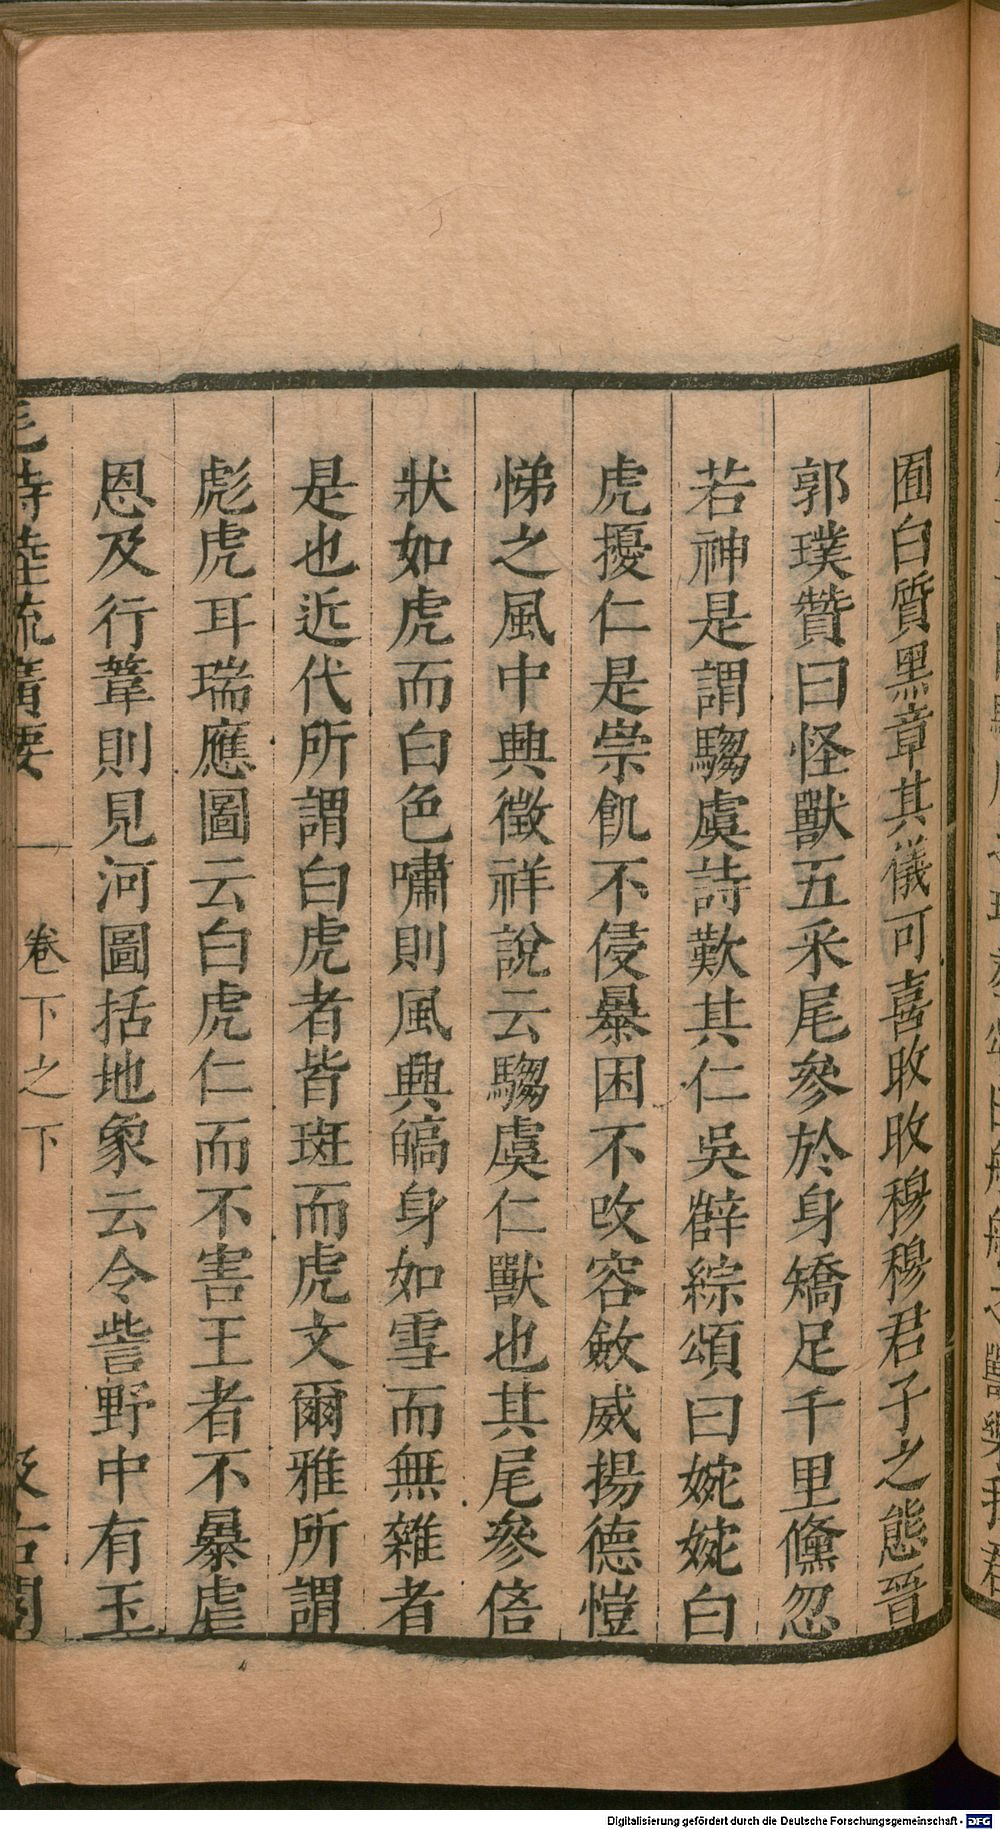 囿白質黑章其儀可喜旼旼穆穆君子之態晉
郭璞贊曰怪獸五采尾參於身矯足千里儵忽
若神是謂騶虞詩歎其仁吳薛綜頌曰婉婉白
虎擾仁是崇飢不侵暴困不改容斂威揚德愷
悌之風中興徵祥說云騶虞仁獸也其尾參倍
狀如虎而白色嘯則風興皜身如雪而無雜者
是也近代所謂白虎者皆斑而虎文爾雅所謂
彪虎耳瑞應圖云白虎仁而不害王者不暴虐
恩及行葦則見河圖括地象云令訾野中有玉
毛詩陸疏廣要 卷下之下 汲古閣
Digitalisierung gefördert durch die Deutsche Forschungsgemeinschaft - DFG